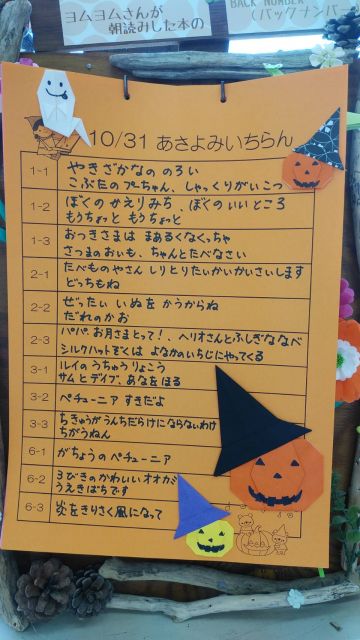 ヨムヨムさんが
朝読みした本の
BACK NUMBER
(バックナンバー
10/31 あさよみいちらん
1-1 やきざかなの のろい
こぶたのプーちゃん、しゃっくりがいこつ
1-2 ぼくの かえりみち、ぼくの いい ところ
もうちょっと もうちょっと
1-3 おつきさまは まあるくなくっちゃ
さつまのおいも、ちゃんとたべなさい
2-1 たべものやさん しりとりたいかいかいさいします
どっちもね
2-2 ぜったい いぬを かうからね
だれのかお
2-3 パパ、お月さまとって!、ヘリオさんとふしぎななべ
シルクハットぞくは よなかのいちじにやってくる
3-1 ルイのうちゅうりょこう
サムとデイブ、あなをほる
3-2 ペチューニア すきだよ
3-3 ちきゅうがうんちだらけにならないわけ
ちがうねん
6-1 がちょうのペチューニア
6-2 3びきのかわいいオオカミ
うえきばちです
6-3 炎をきりさく風になって